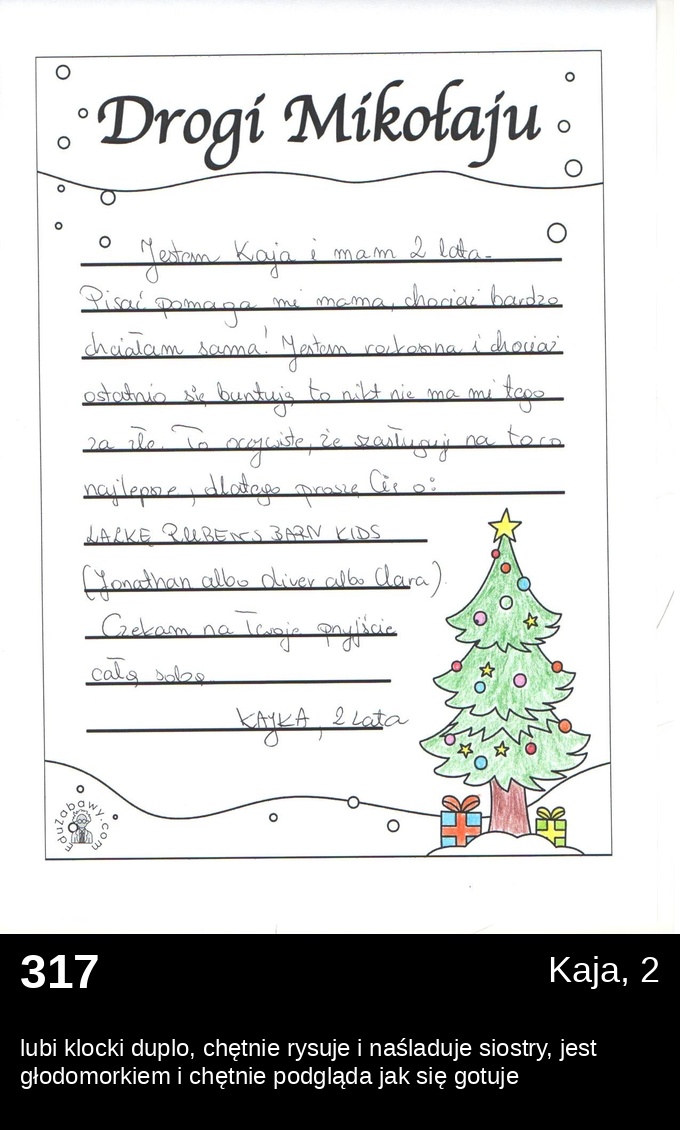 Drogi Mikołaju
Jestem Kaja i mam 2 lata.
Pisać pomaga mi mama, chociaż bardzo
chciałam sama! Jestem rozkoszna i chociaż
ostatnio się buntuję to nikt nie ma mi tego
za złe. To oczywiste, że zasługuję na to co
najlepsze, dlatego proszę Cię o:
LALKĘ RUBENS BARN KIDS
(Jonathan albo Oliver albo Clara).
Czekam na Twoje przyjście
całą sobą.
KAJKA, 2 lata
eduzabawy.com
317
Kaja, 2
lubi klocki duplo, chętnie rysuje i naśladuje siostry, jest
głodomorkiem i chętnie podgląda jak się gotuje